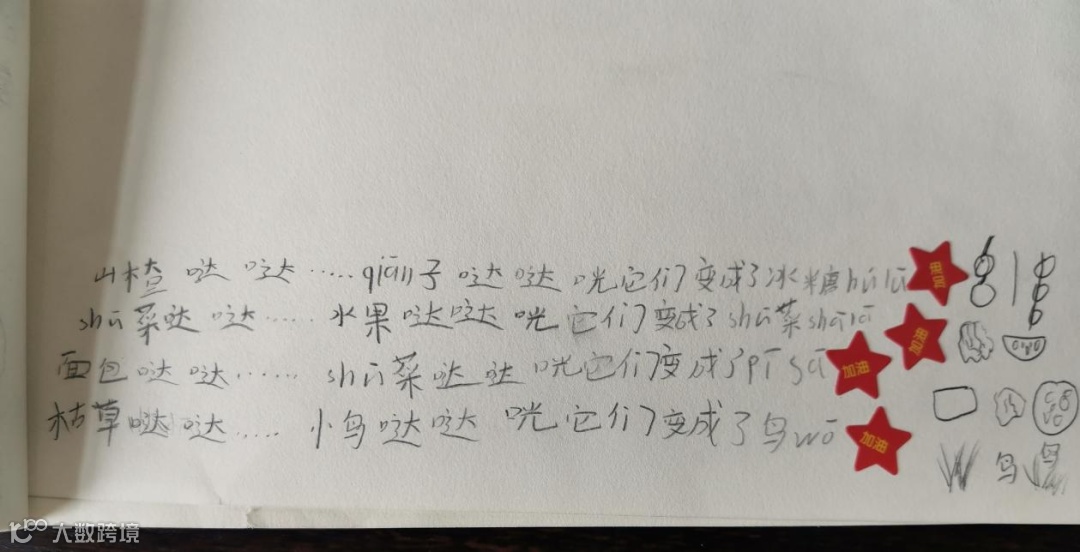 山楂哒哒……qiān子哒哒咣它们变成了冰糖húlū
shū菜哒哒……水果哒哒咣它们变成了shū菜shālā
面包哒哒……shū菜哒哒咣它们变成了pī sā
枯草哒哒……小鸟哒哒咣它们变成了鸟wō
加油
加油
鸟
大数跨境